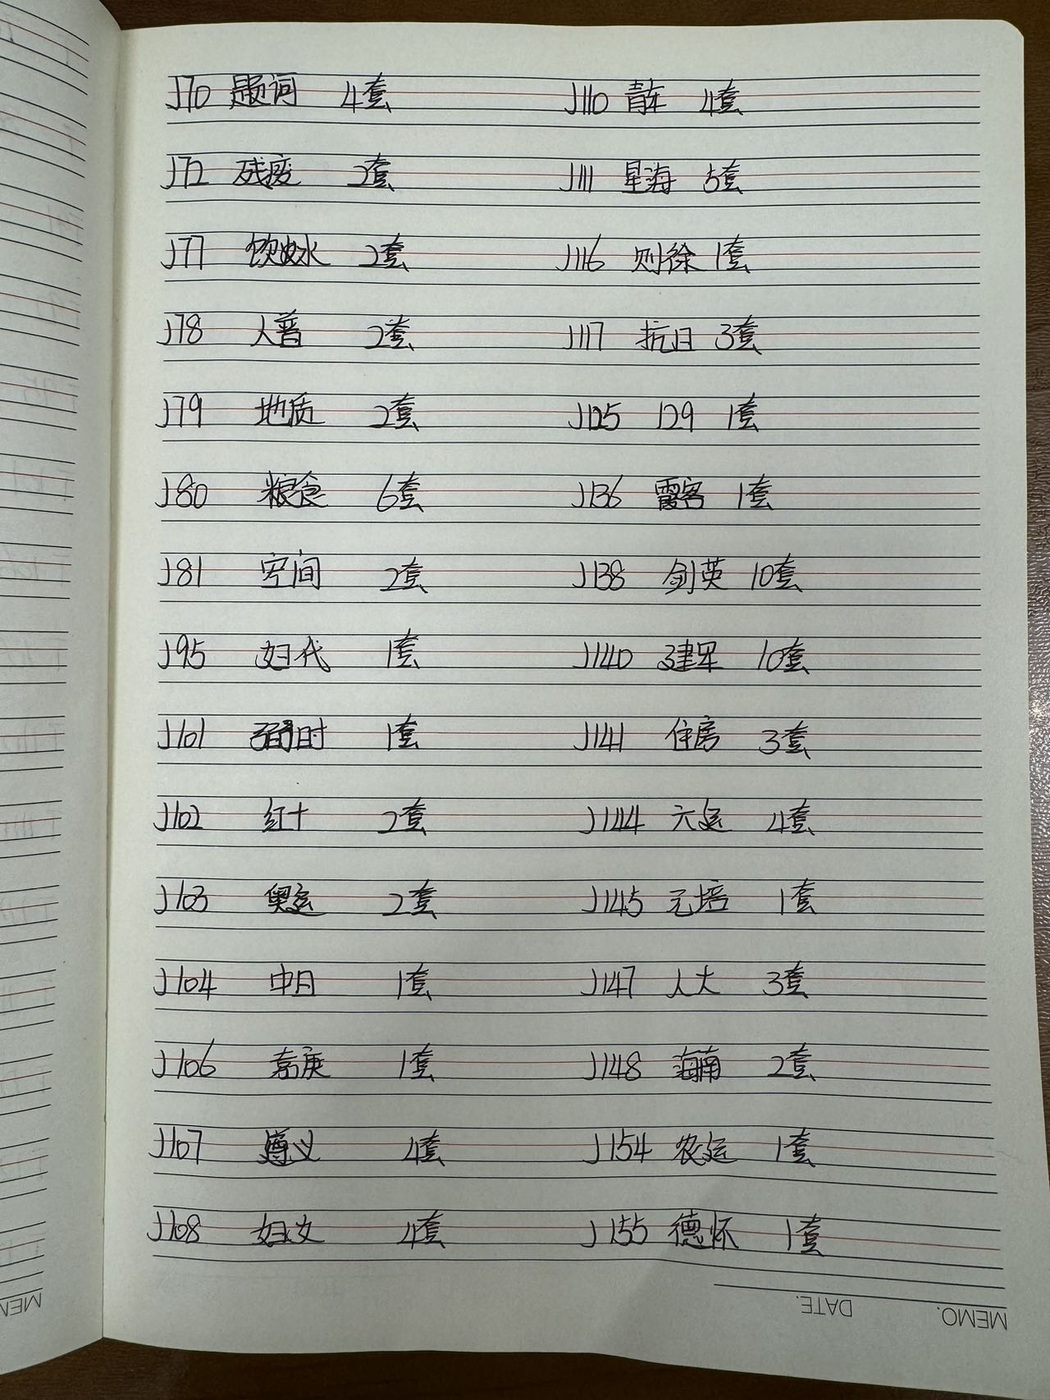 J70 题词 4套
J72 残废 2套
J77 饮水 2套
J78 人普 2套
J79 地质 2套
J80 粮食 6套
J81 空间 2套
J95 妇代 1套
J101 时 1套
J102 红十 2套
J103 奥运 2套
J104 中日 1套
J106 嘉庚 1套
J107 遵义 4套
J108 妇女 4套
J110 青年 4套
J111 星海 5套
J116 则徐 1套
J117 抗日 3套
J125 129 1套
J136 霞客 1套
J138 剑英 10套
J140 建军 10套
J141 住房 3套
J144 六运 4套
J145 元培 1套
J147 人大 3套
J148 海南 2套
J154 农运 1套
J155 德怀 1套
DATE.
MEMO.